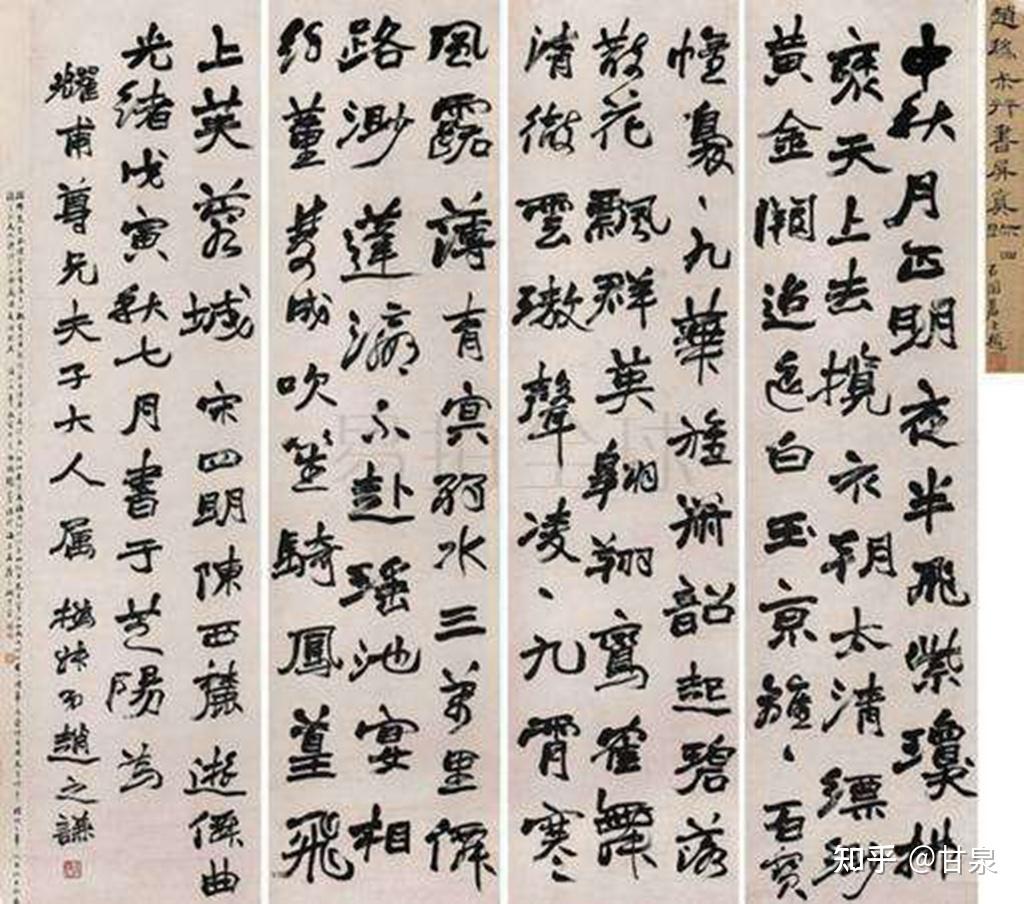 趙撝叔行書屏真跡 四
中秋月正明夜半飛紫瓊排
天上去攬衣朝太清縹緲
黃金闕迢遥白玉京百寶
幢裊ヽ九華旌韶起碧落
散花飄群英翱翔鸞雀舞
清徹雲璈聲凌ヽ九霄寒ヽ
風露薄有冥弱水三萬里僊
路渺蓬瀛不赴瑤池宴相
約董雙成吹笙騎鳳凰飛
上芙蓉城 宋四明陳西麓遊僊曲
光緒戊寅秋七月書于芝陽為
耀甫尊兄夫子大人属 撝叔弟趙之謙
知乎 @甘泉